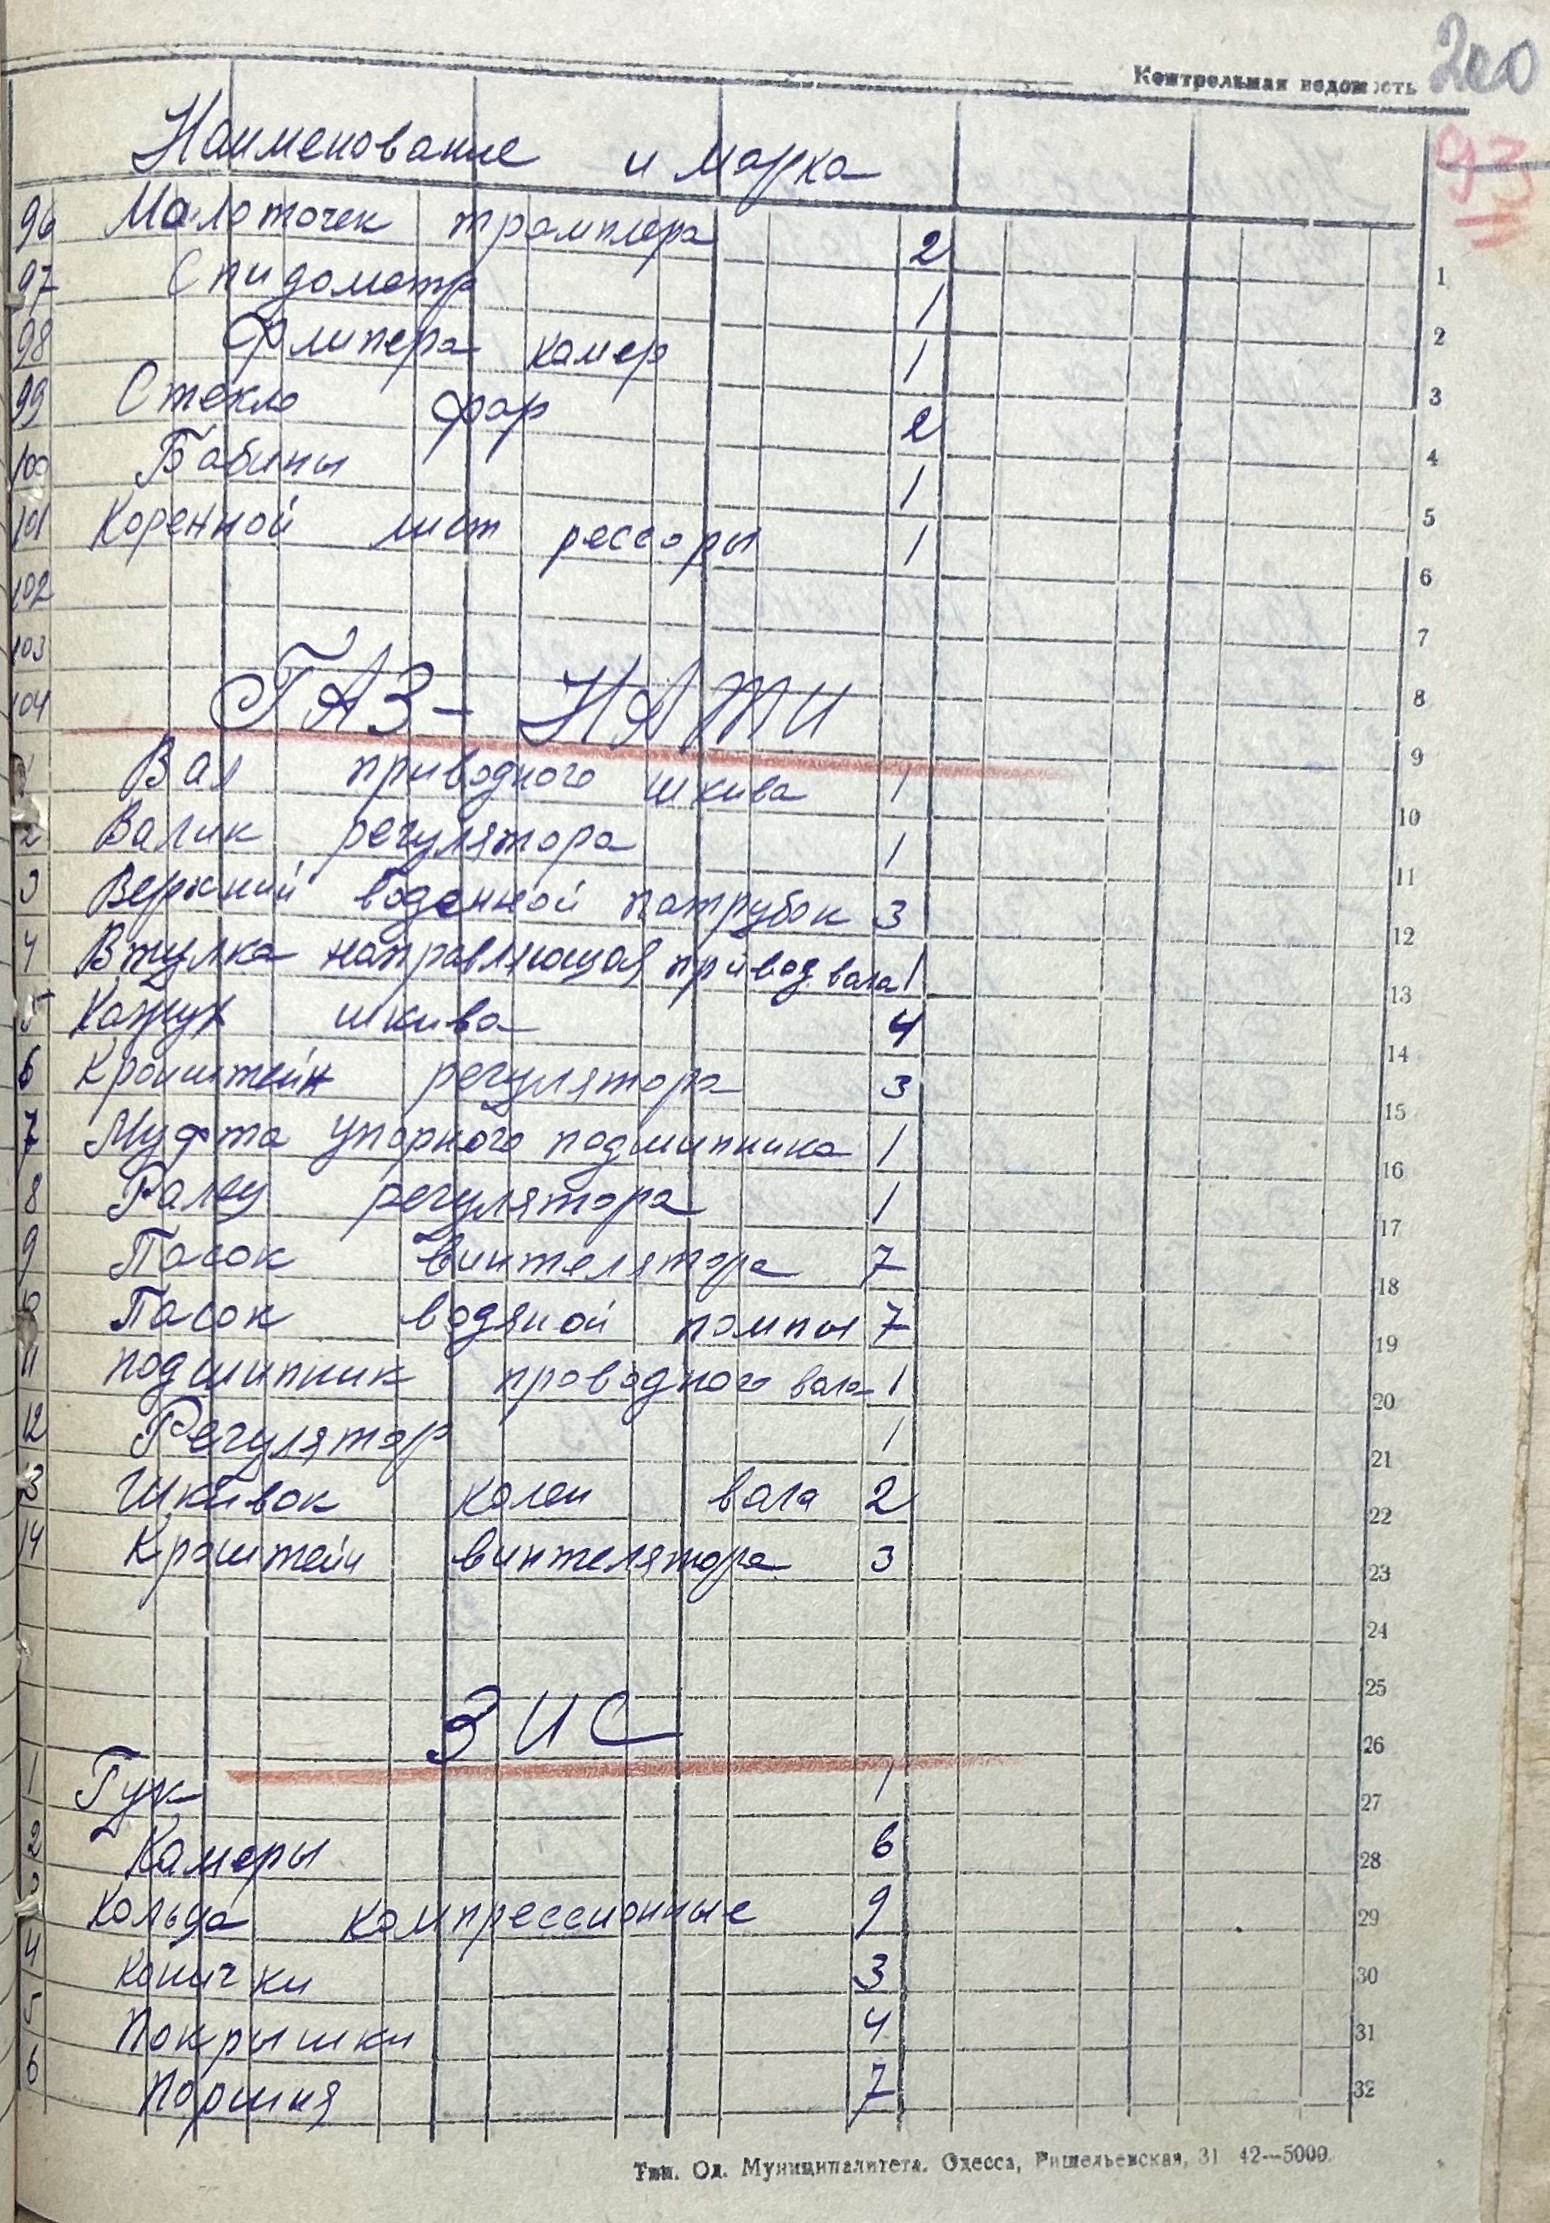 Контрольная ведомость 200
93
Наименование и марка
96 Молоточек трамплера 2
97 Спидометр 1 1
98 Флипера камер 1 2
99 Стекло фар 2 3
100 Бабины 1 4
101 Коренной лист рессоры 1 5
102 6
103 7
104 ГАЗ-НАТИ 8
9
1 Вал приводного шкива 1 10
2 Валик регулятора 1 11
3 Верхний воденной патрубок 3 12
4 Втулка направляющая привод. вала 1 13
5 Кожух шкива 4 14
6 Кронштейн регулятора 3 15
7 Муфта упорного подшипника 1 16
8 регулятора 1 17
9 Пасок винтелятора 7 18
Пасок водяной помпы 7 19
11 подшипник проводного вала 1 20
12 Регулятор 1 21
13 Шкивок колен вала 2 22
14 Кронштейн винтелятора 3 23
24
25
ЗИС 26
1 Гук 1 27
2 Камеры 6 28
Кольца компрессионные 9 29
4 Конички 3 30
5 Покрышки 4 31
6 Поршня 7 32
Тип. Од. Муниципалитета. Одесса, Ришельевская, 31 42—5000